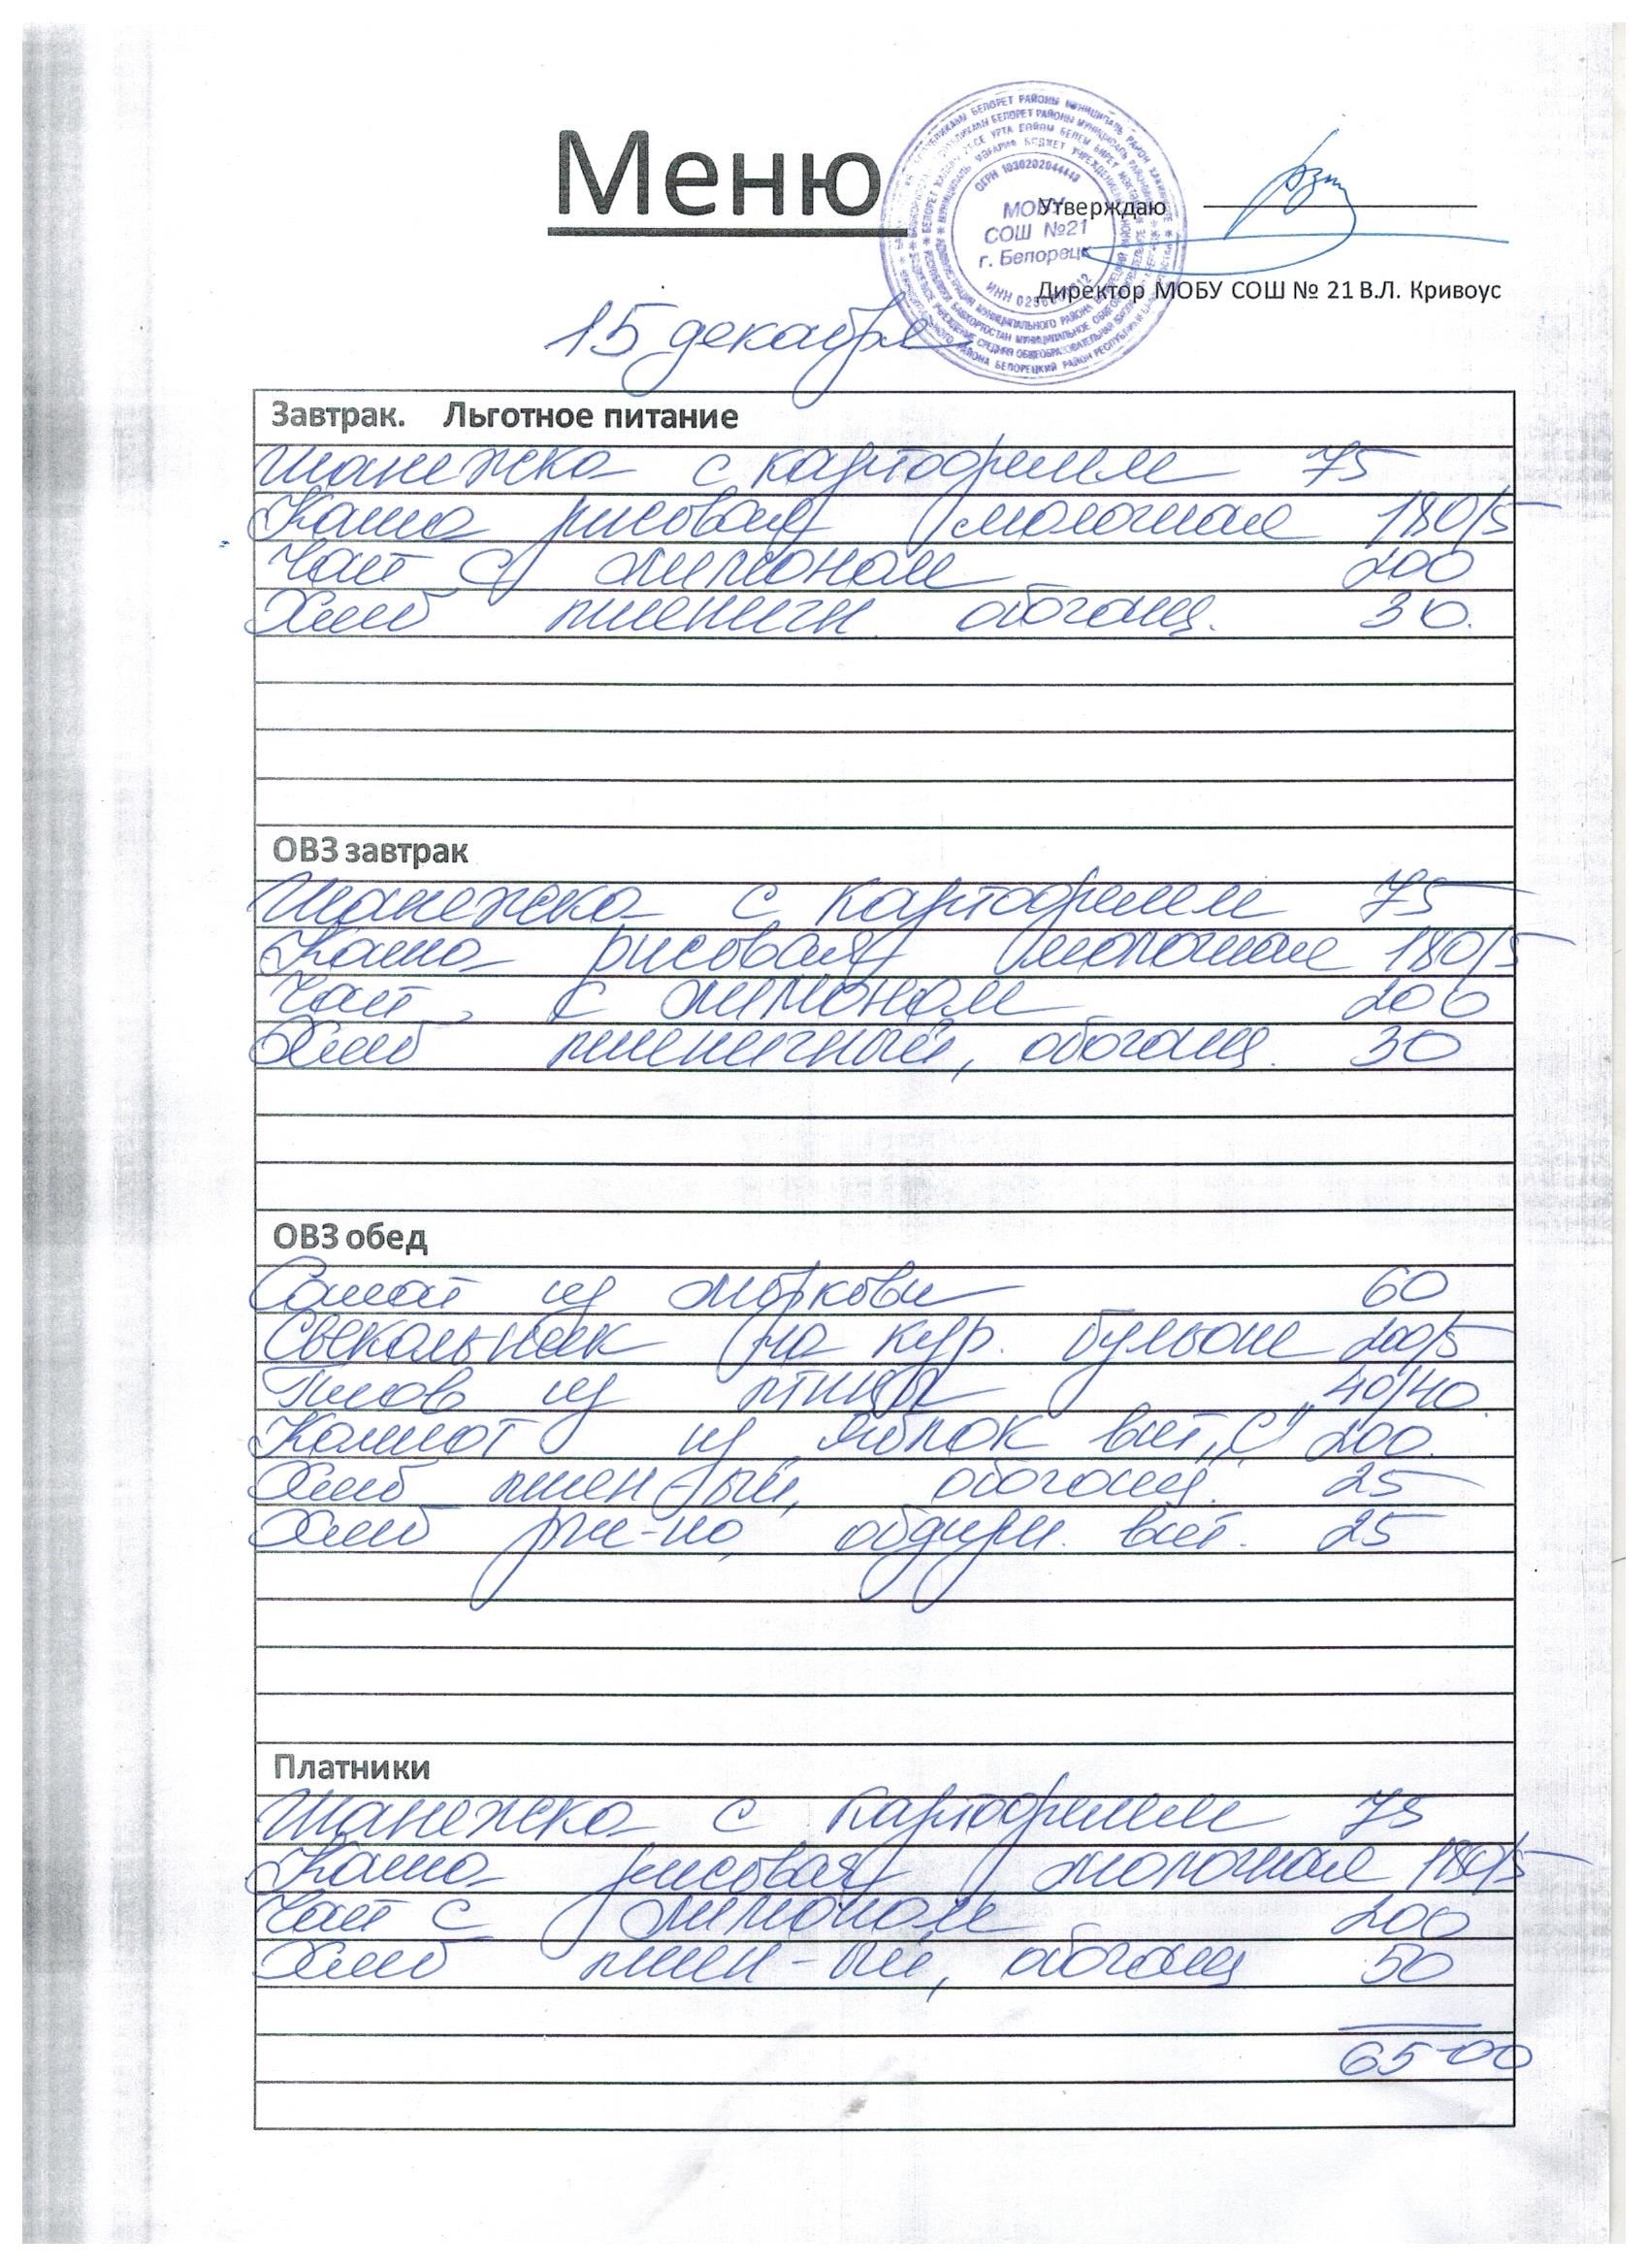 Меню
Утверждаю
МОБУ
СОШ №21
г. Белорецк
ОГРН 1030202044443
Директор МОБУ СОШ № 21 В.Л. Кривоус
15 декабря
Завтрак. Льготное питание
Шанежка с картофелем 75
Каша рисовая молочная 180/5
Чай с лимоном 200
Хлеб пшеничн. обогащ. 30.
ОВЗ завтрак
Шанежка с картофелем 75
Каша рисовая молочная 180/5
Чай с лимоном 200
Хлеб пшеничный, обогащ. 30
ОВЗ обед
Салат из моркови 60
Свекольник на кур. бульоне 200/5
Плов из птицы 40/140
Компот из яблок вит „С" 200
Хлеб пшен-ый, обогащ. 25
Хлеб рж-по, обдирн. вит. 25
Платники
Шанежка с картофелем 75
Каша рисовая молочная 180/5
Чай с лимоном 200
Хлеб пшен-ый, обогащ 50
65-00